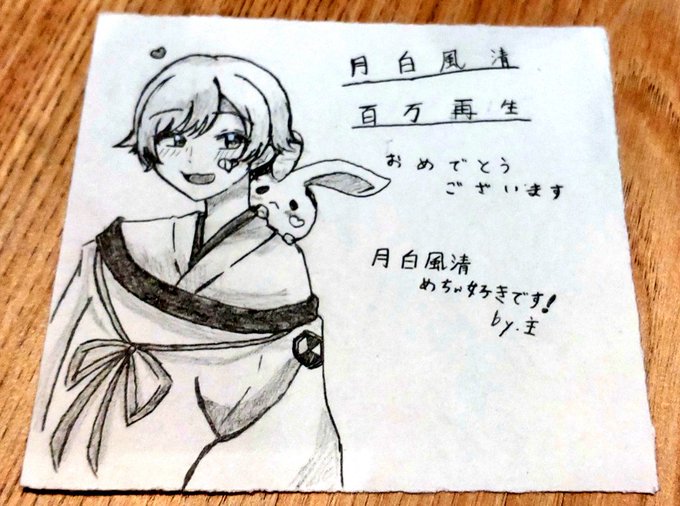 月白風清
百万再生
おめでとう
ございます
月白風清
めちゃ好きです!
by.主